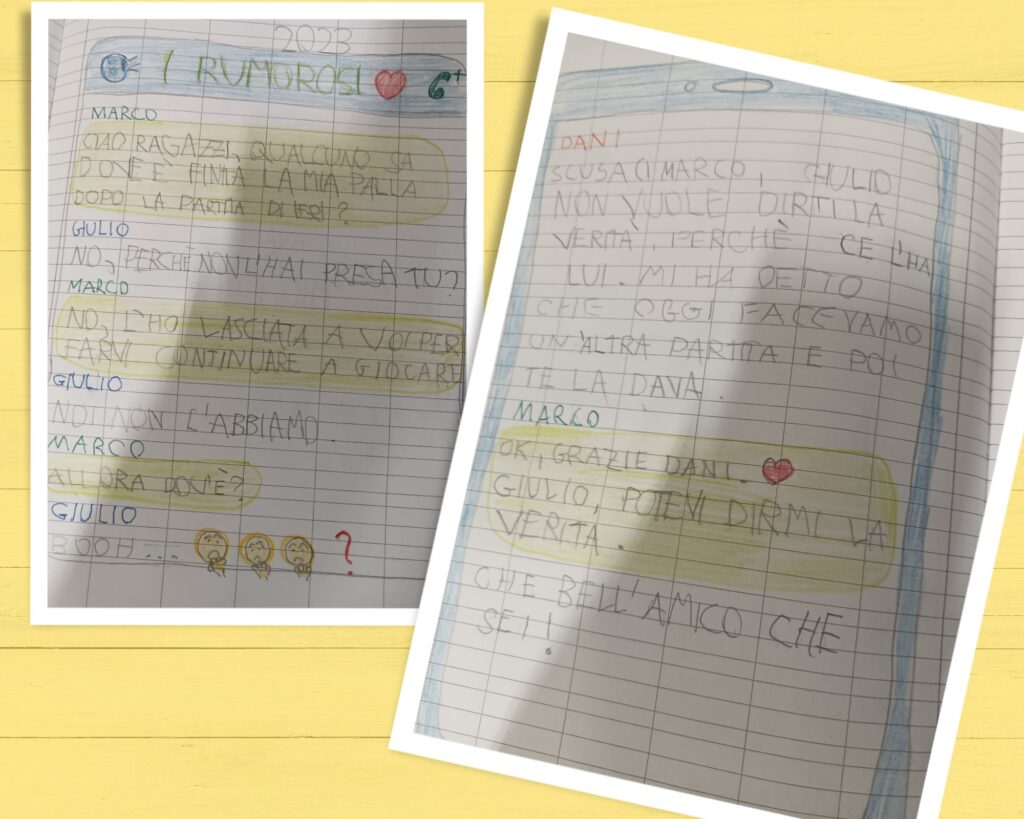 2023
I RUMOROSI
MARCO
CIAO RAGAZZI, QUALCUNO SA
DOVE È FINITA LA MIA PALLA
DOPO LA PARTITA DI IERI?
GIULIO
NO, PERCHÈ NON L'HAI PRESA TU?
MARCO
NO, L'HO LASCIATA A VOI PER
FARVI CONTINUARE A GIOCARE
GIULIO
NOI NON L'ABBIAMO.
MARCO
ALLORA DOV'È?
GIULIO
BOOH... ?
DANI
SCUSACI MARCO, GIULIO
NON VUOLE DIRTI LA
VERITÀ, PERCHÈ CE L'HA
LUI. MI HA DETTO
CHE OGGI FACEVAMO
UN'ALTRA PARTITA E POI
TE LA DAVA.
MARCO
OK, GRAZIE DANI.
GIULIO, POTEVI DIRMI LA
VERITÀ.
CHE BELL'AMICO CHE
SEI!